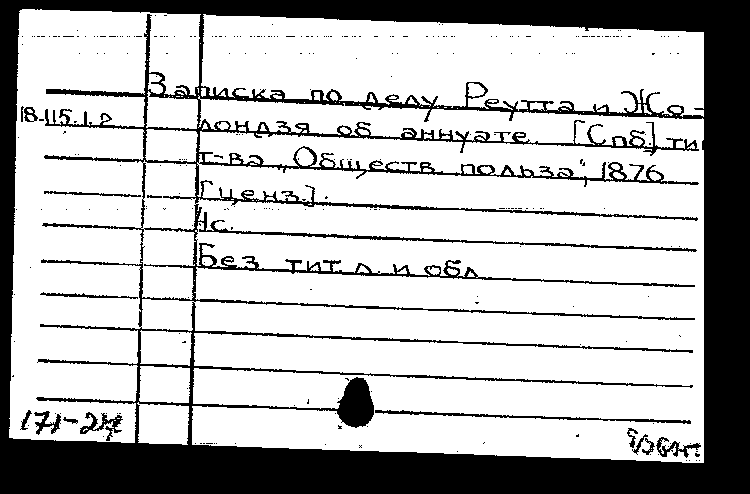 Записка по делу Реутта и Жо-
18.115.1.2 лондзя об аннуате. [Спб], тип
т-ва „Обществ. польза", 1876
[ценз.].
4с.
Без тит. л. и обл.
171-24